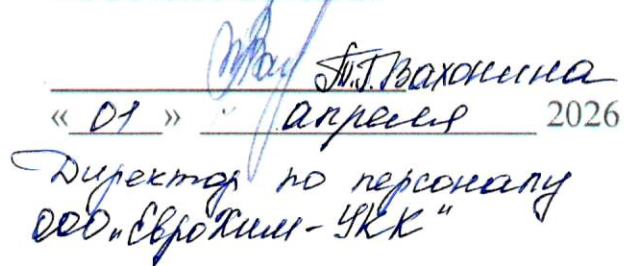 Т.Г. Вахонина
« 01 » апреля 2026
Директор по персоналу
ООО „ЕвроХим-УКК"